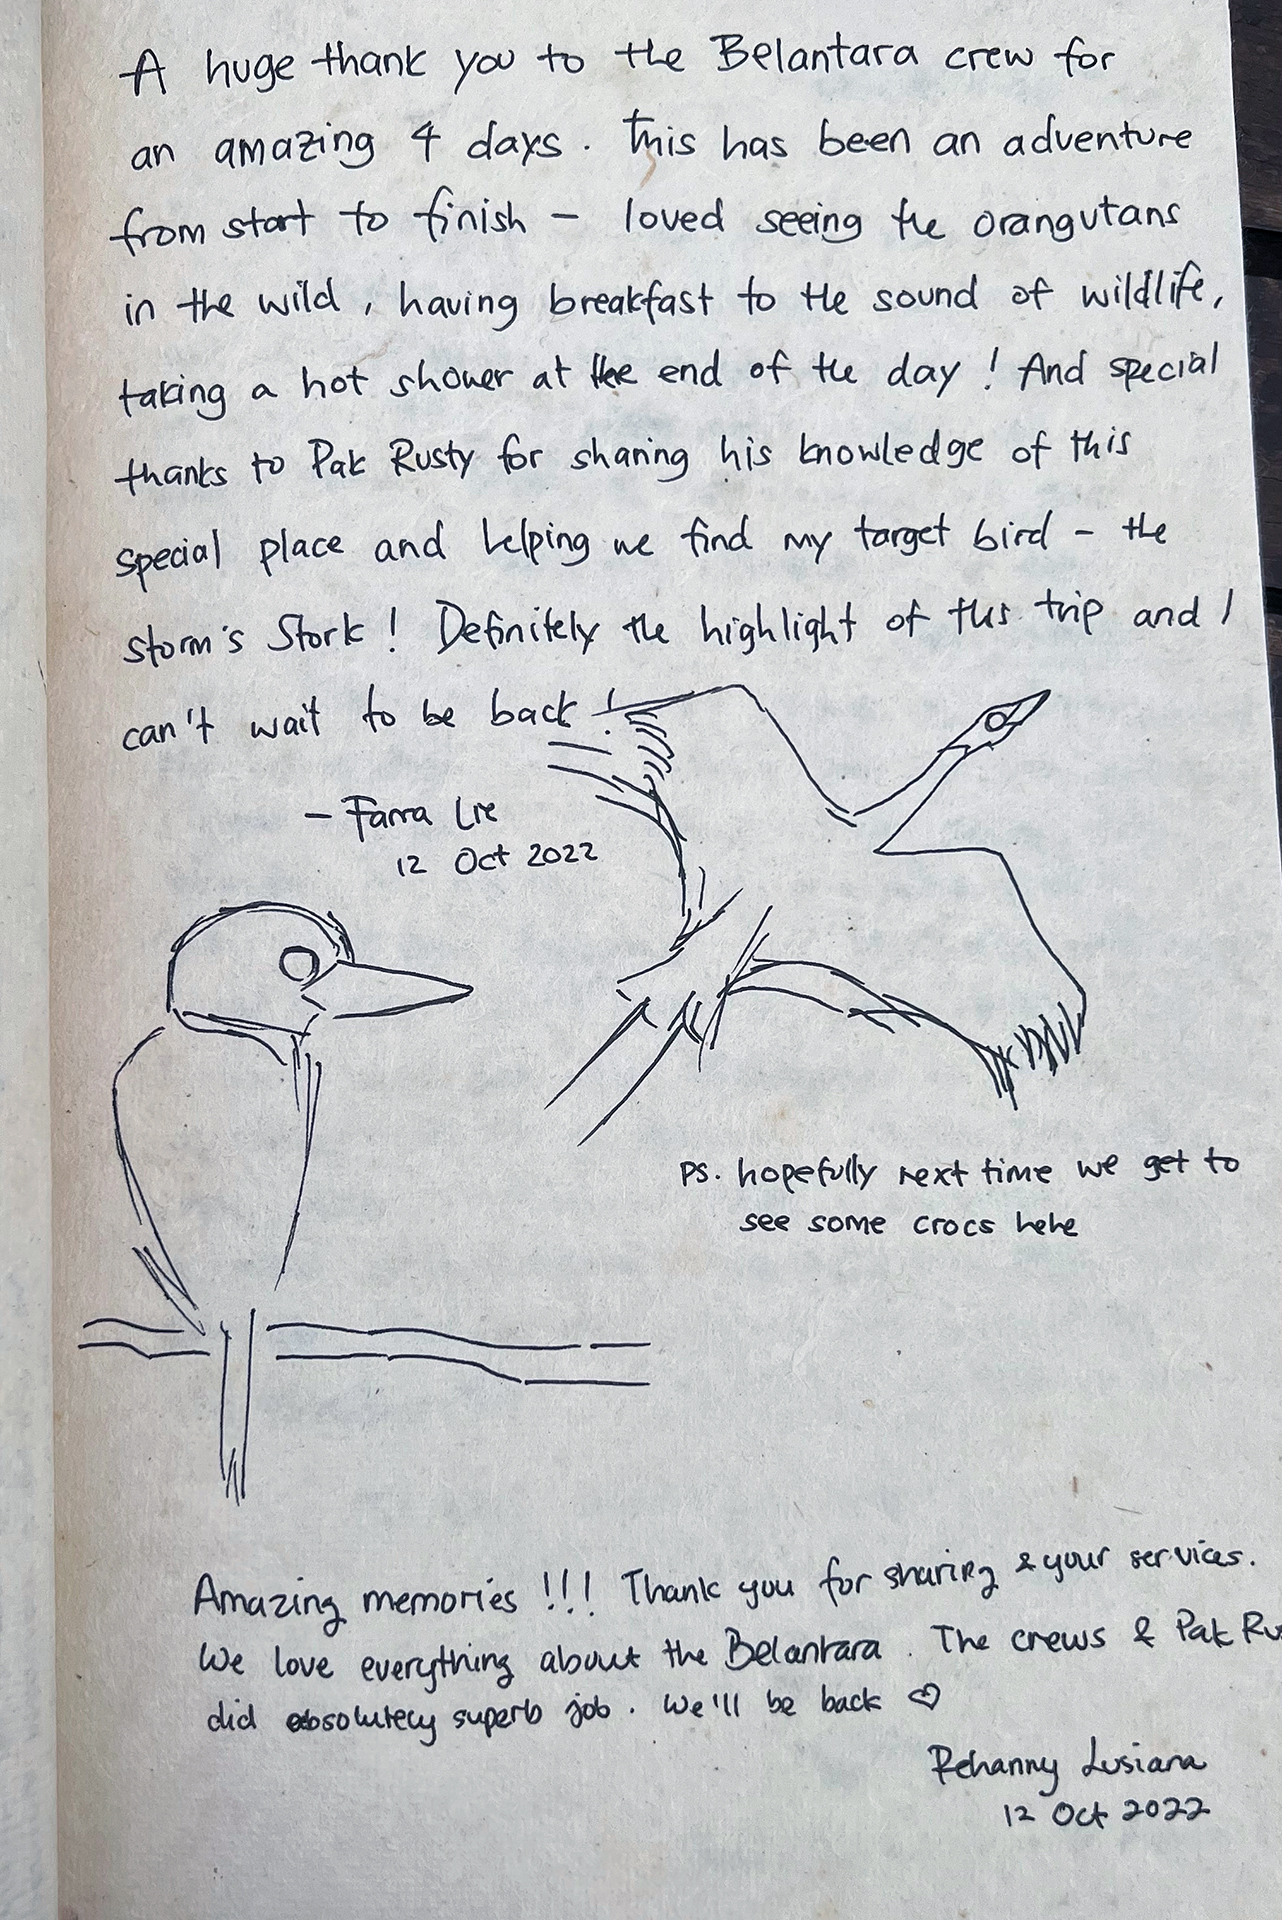 A huge thank you to the Belantara crew for
an amazing 4 days. This has been an adventure
from start to finish - loved seeing the orangutans
in the wild, having breakfast to the sound of wildlife,
taking a hot shower at the end of the day! And special
thanks to Pak Rusty for sharing his knowledge of this
special place and helping me find my target bird - the
storm's Stork! Definitely the highlight of this trip and I
can't wait to be back!
- Farra Lie
12 Oct 2022
PS. hopefully next time we get to
see some crocs hehe
Amazing memories !!! Thank you for sharing & your services.
We love everything about the Belantara. The crews & Pak Ru
did absolutely superb job. We'll be back ♡
Rehanny Lusiana
12 Oct 2022